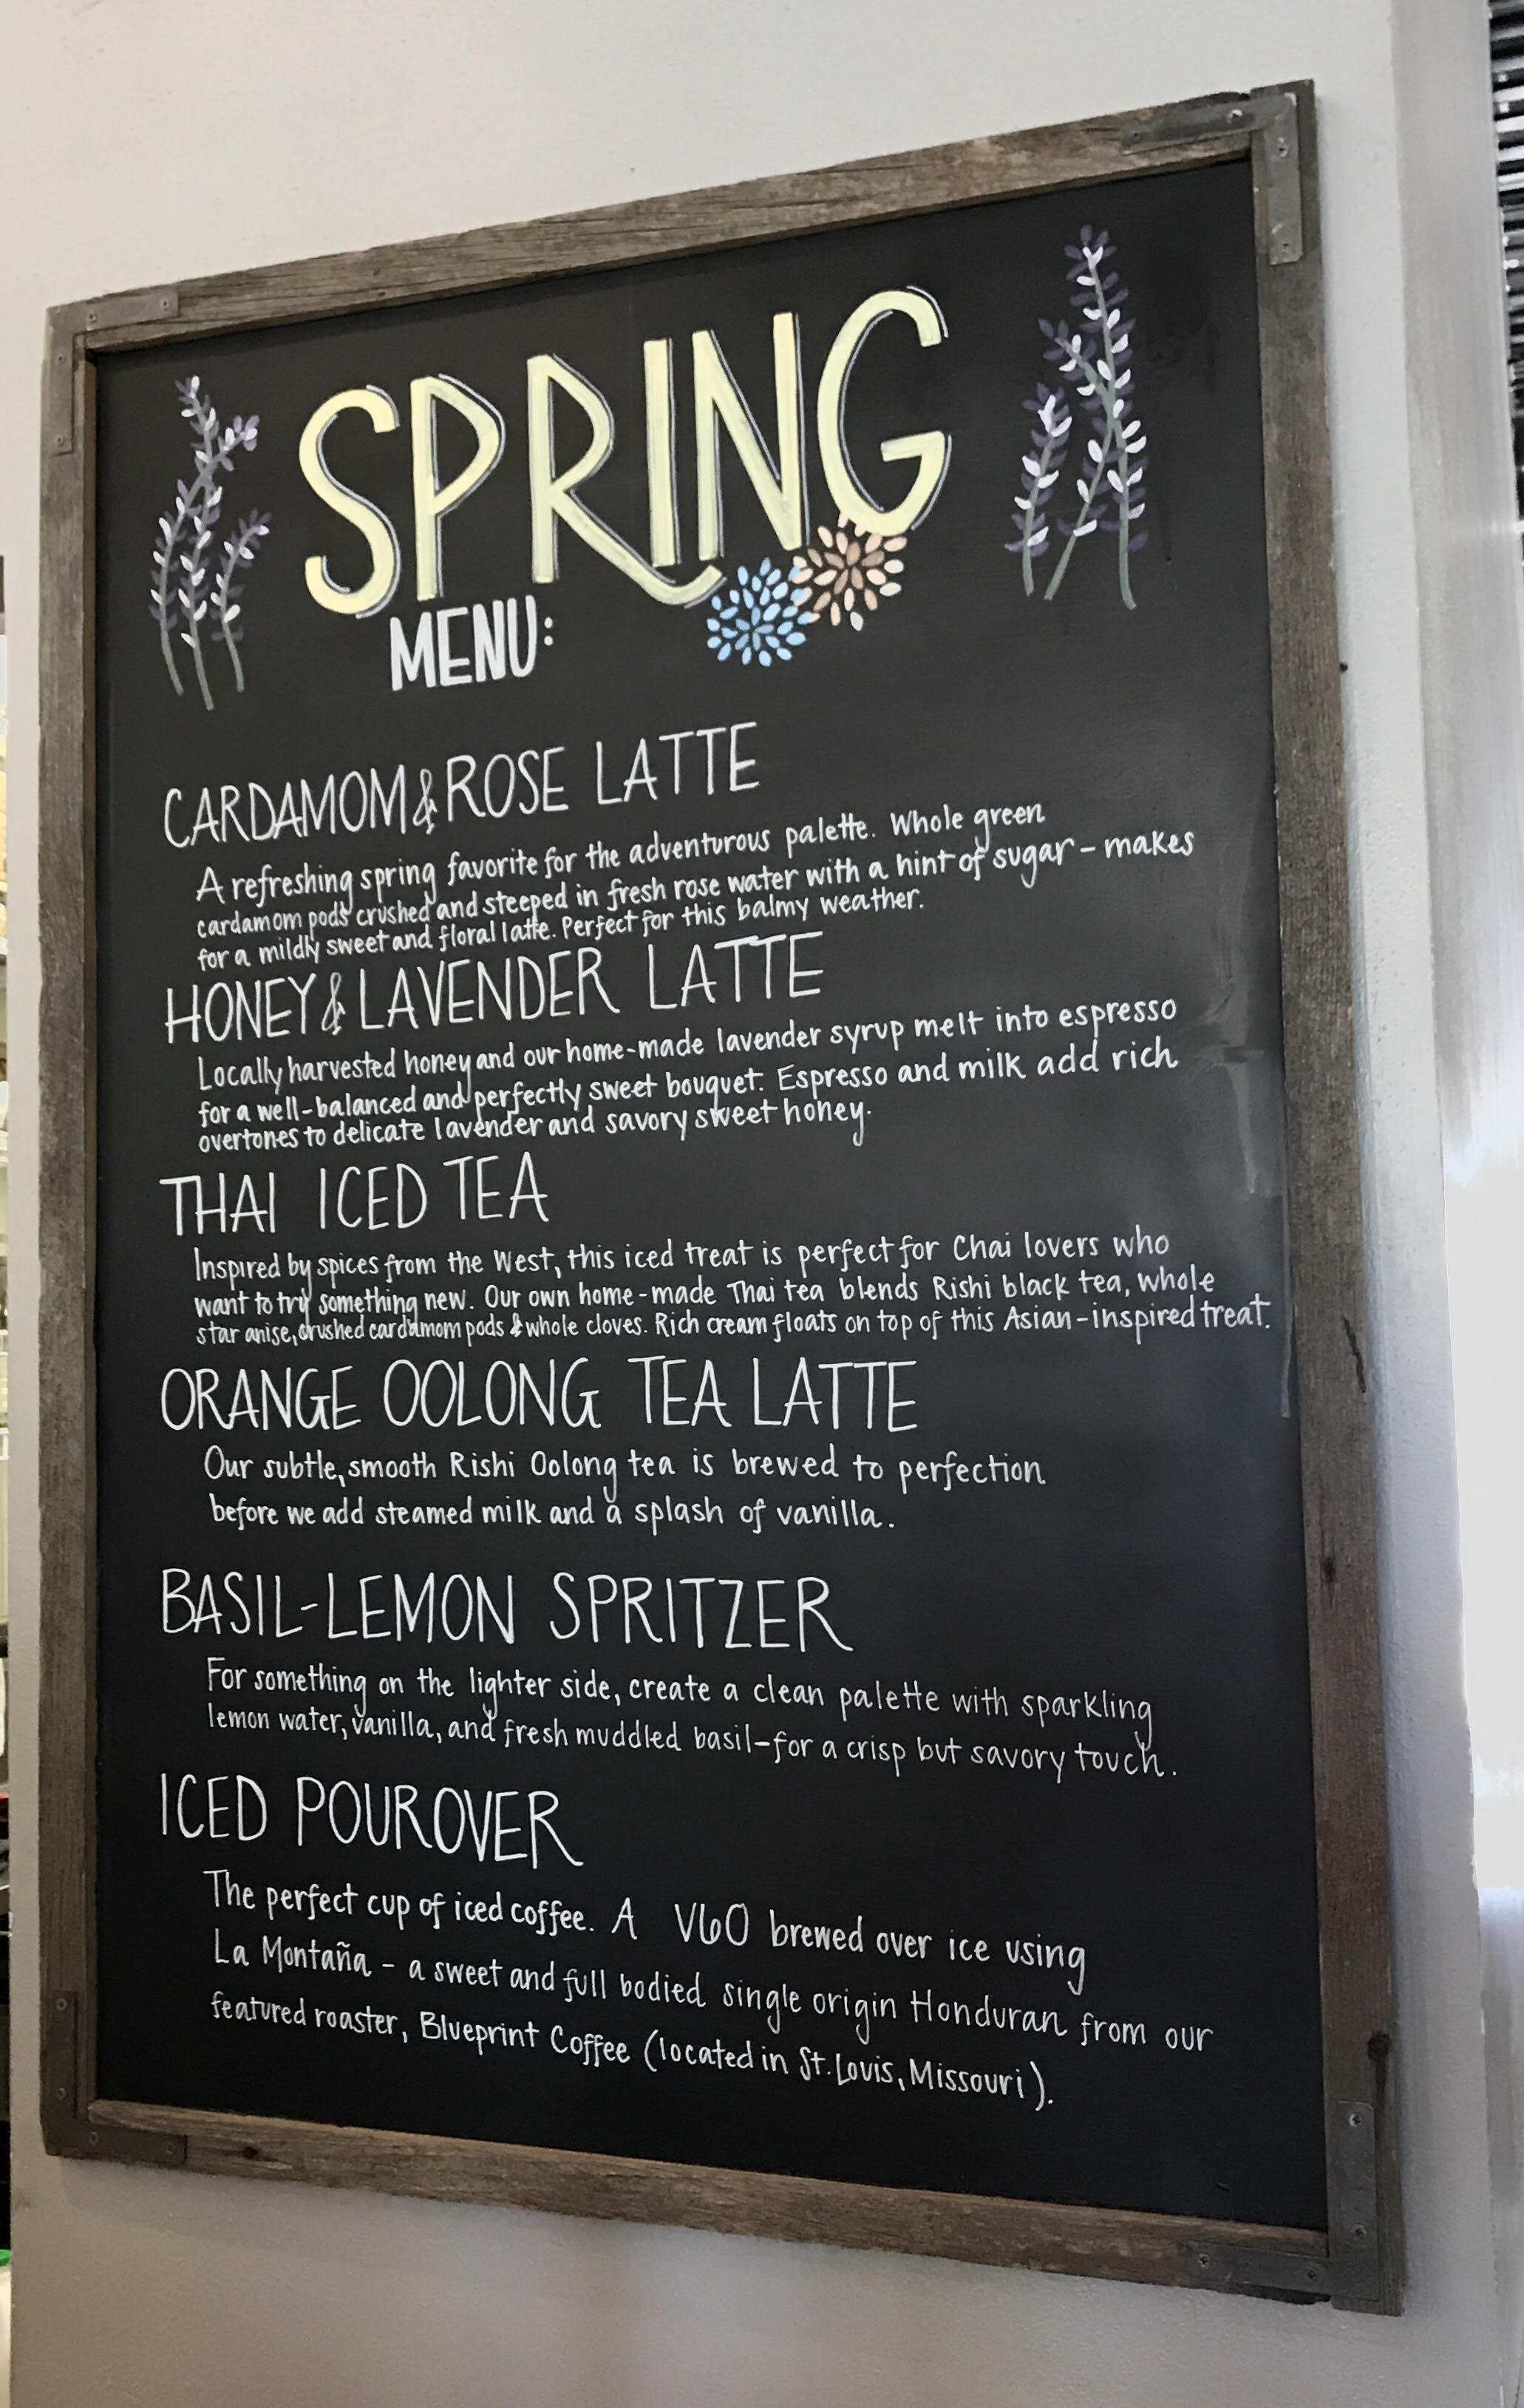 SPRING
MENU:
CARDAMOM & ROSE LATTE
A refreshing spring favorite for the adventurous palette. Whole green
cardamom pods crushed and steeped in fresh rose water with a hint of sugar - makes
for a mildly sweet and floral latte. Perfect for this balmy weather.
HONEY & LAVENDER LATTE
Locally harvested honey and our home-made lavender syrup melt into espresso
for a well-balanced and perfectly sweet bouquet. Espresso and milk add rich
overtones to delicate lavender and savory sweet honey.
THAI ICED TEA
Inspired by spices from the West, this iced treat is perfect for Chai lovers who
want to try something new. Our own home-made Thai tea blends Rishi black tea, whole
star anise, crushed cardamom pods & whole cloves. Rich cream floats on top of this Asian-inspired treat.
ORANGE OOLONG TEA LATTE
Our subtle, smooth Rishi Oolong tea is brewed to perfection
before we add steamed milk and a splash of vanilla.
BASIL-LEMON SPRITZER
For something on the lighter side, create a clean palette with sparkling
lemon water, vanilla, and fresh muddled basil-for a crisp but savory touch.
ICED POUROVER
The perfect cup of iced coffee. A V60 brewed over ice using
La Montaña - a sweet and full bodied single origin Honduran from our
featured roaster, Blueprint Coffee (located in St. Louis, Missouri).